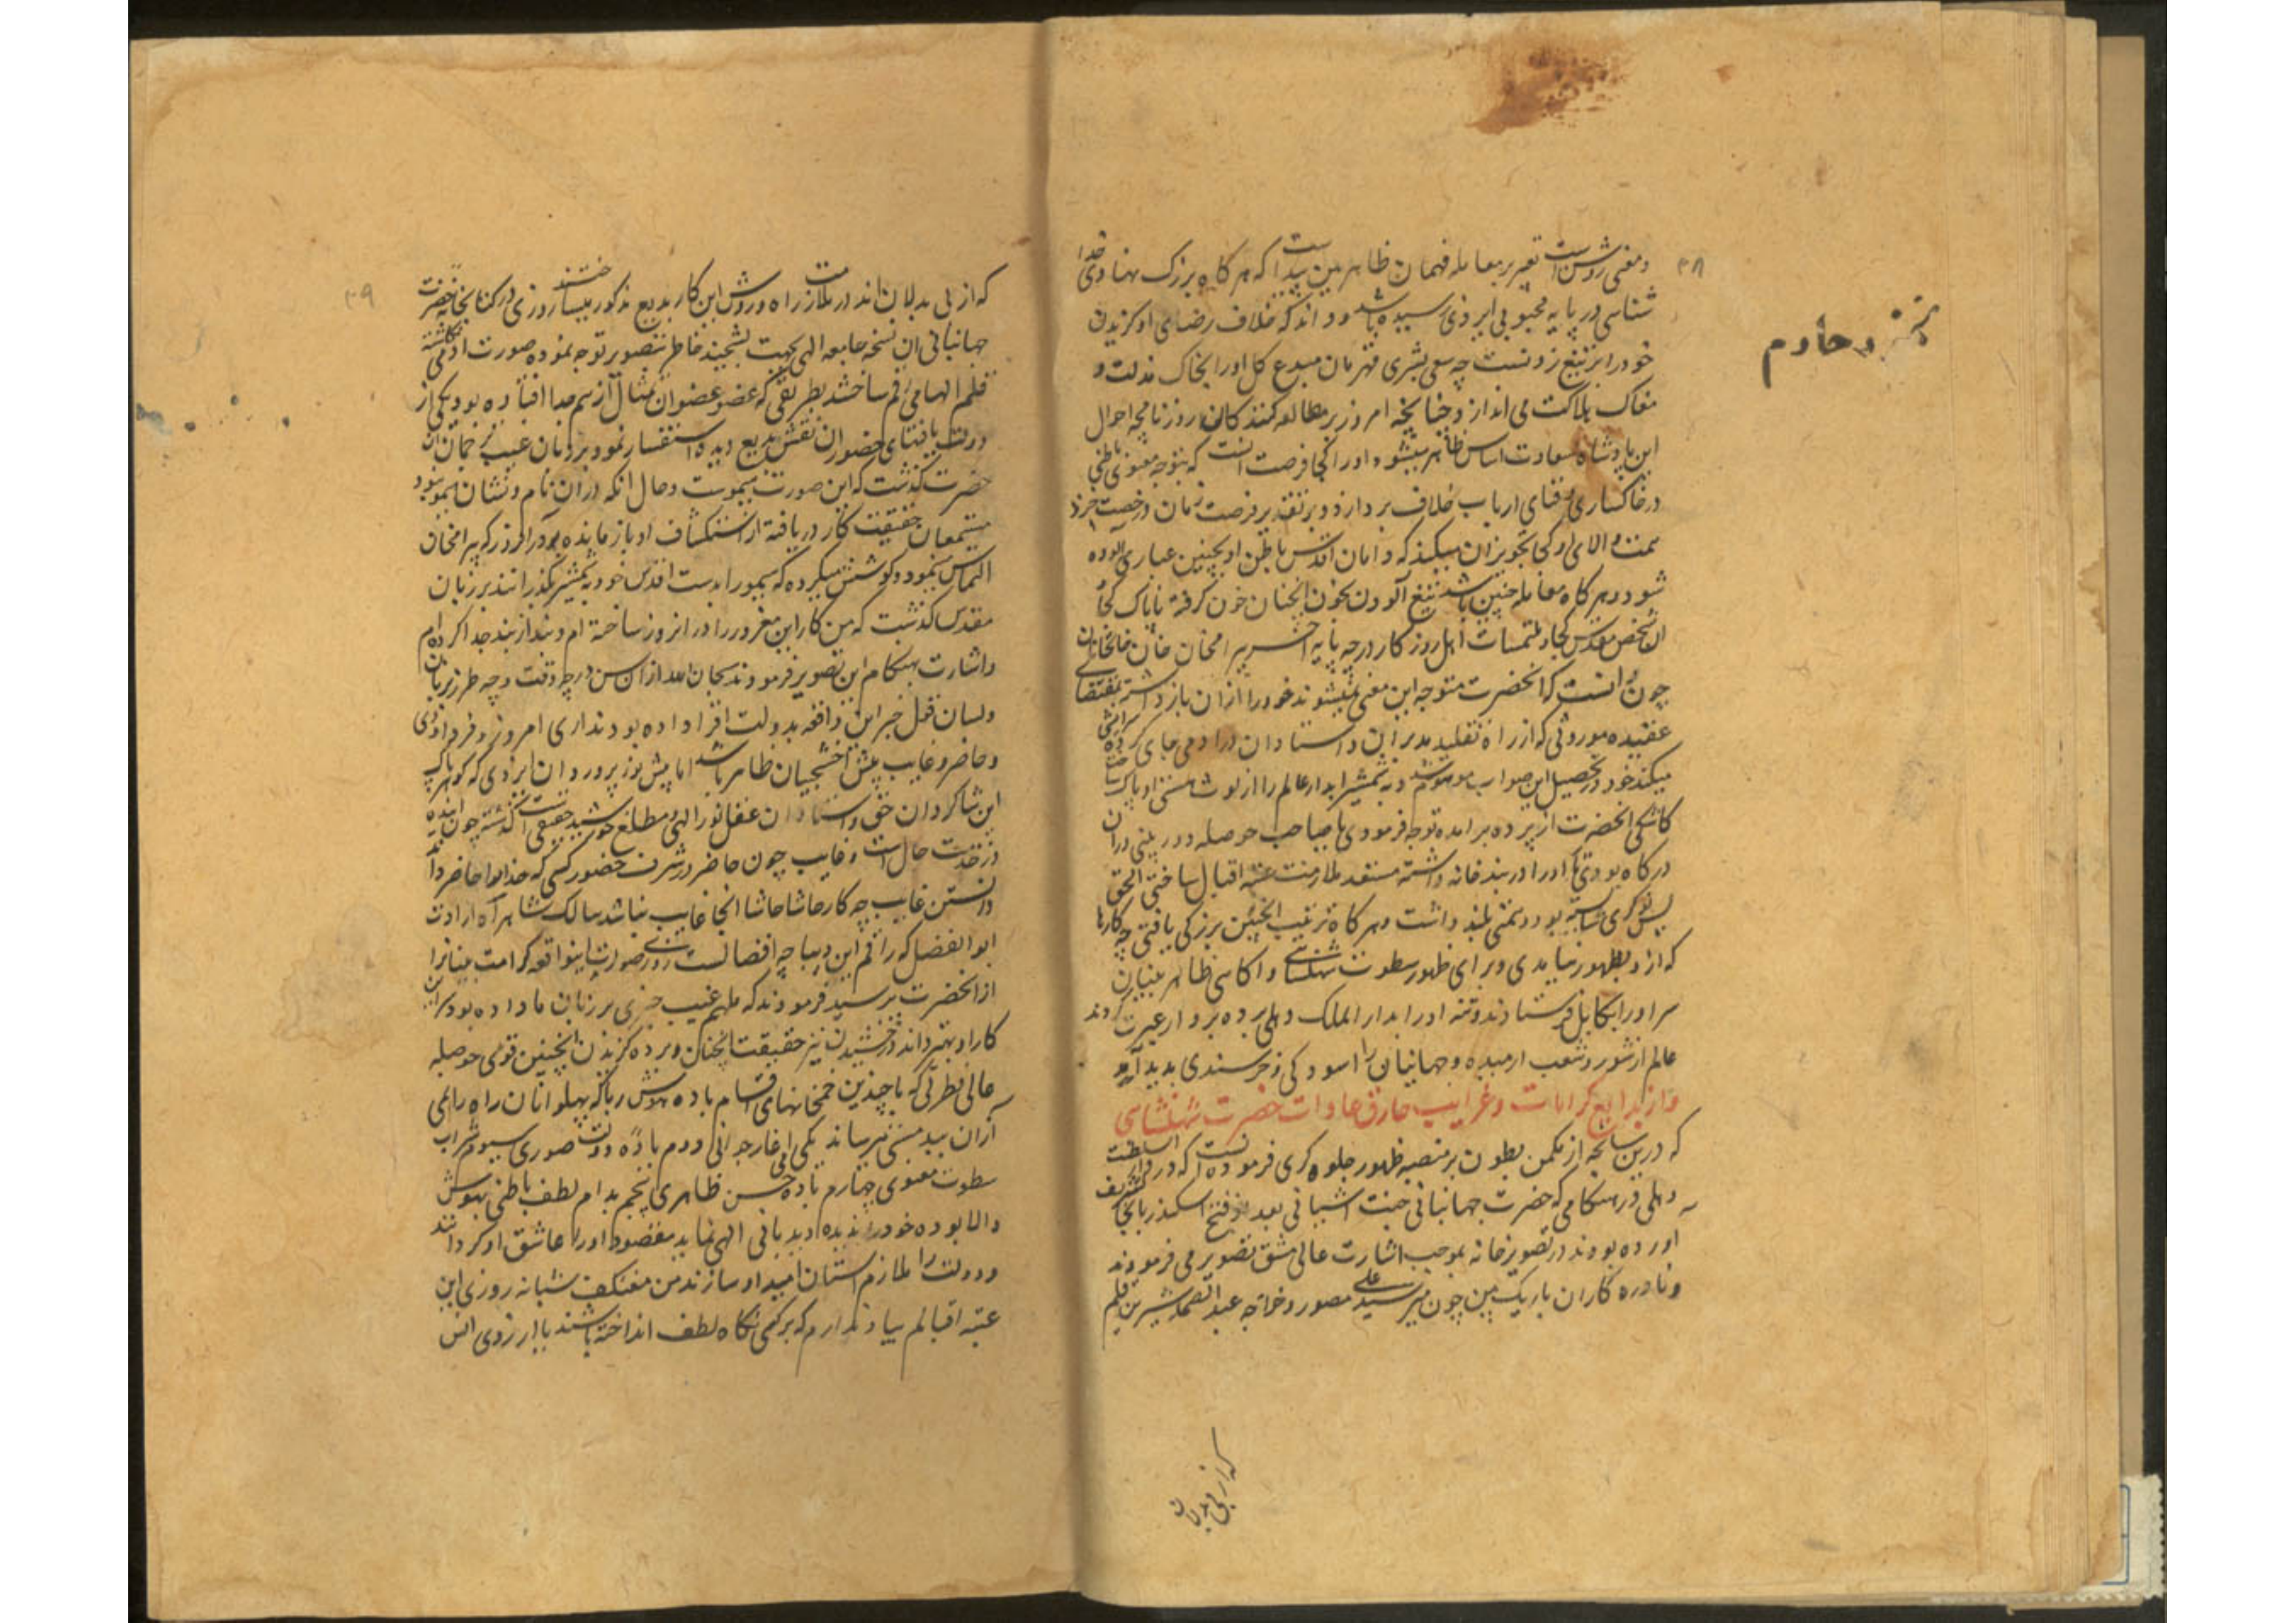 ۳۸
و معنی روشن است تعبیر بر معامله فهمان ظاهر بین پیداست که هرگاه بزرگ نهادی خدا
شناسی در پایه محبوبی ایزدی رسیده باشد و داند که خلاف رضای او گزیدن
خود را بر تیغ زدنست چه سعی بشری قهرمان مبدع کل او را بخاک مذلت و
مغاک هلاکت می اندازد چنانچه امروز بر مطالعه کنندگان روزنامچه احوال
این پادشاه سعادت اساس ظاهر میشود او را کجا فرصت آنست که بتوجه معنوی باطنی
در خاکساری و فنای ارباب خلاف پردازد و بر تقدیر فرصت زمان و رخصت خرد
همت والای او کجا تجویز آن میکند که دامان اقدس باطن او بچنین غباری آلوده
شود و هرگاه معامله چنین باشد تیغ آلودن بخون آنچنان خون گرفته ناپاک کجا
آن شخص مقدس کجا و ملتمسات اهل روزگار در چه پایه است بیرامخان خان خانان
چون دانست که آنحضرت متوجه این معنی نمیشوند خود را از آن باز داشته بمقتضای
عقیده موروثی که از راه تقلید پدران و استادان در آدمی جای کرده
میکند خود در تحصیل این صواب موهوم شد و به شمشیر ابدار عالم را از لوث هستی او پاک ساخت
کاشکی آنحضرت از پرده برآمده توجه فرمودی یا صاحب حوصله دوربینی در آن
درگاه بودی تا او را در بند خانه داشته مستعد ملازمت عتبه اقبال ساختی الحق
بس نوکری شایسته بود و همتی بلند داشت و هرگاه ترتیب اینچنین بزرگی یافتی چه کارها
که از و بظهور نیامدی و برای ظهور سطوت شاهنشاهی و آگاهی ظاهر بینان
سر او را بکابل فرستادند و تنه او را بدار الملک دهلی برده بردار عبرت کردند
عالم از شور و شغب آرمیده و جهانیان را آسودگی و خرسندی پدید آمد
و از بدایع کرامات و غرایب خارق عادات حضرت شاهنشاهی
که درین سانحه از مکمن بطون بر منصه ظهور جلوه گری فرموده آنست که در دار السلطنت
دهلی در هنگامی که حضرت جهانبانی جنت آشیانی بعد از فتح اسکندر بانجا تشریف
آورده بودند در تصویر خانه بموجب اشارت عالی مشق تصویر می فرمودند
و نادره کاران باریک بین چون میر سید علی مصور و خواجه عبد الصمد شیرین قلم
که از بی بدلان
۳۹
که از بی بدلان اند در ملازمت راه و روش این کار بدیع مذکور میساختند روزی در کتابخانه حضرت
جهانبانی آن نسخه جامعه الهی بجهت تشحیذ خاطر بتصویر توجه نموده صورت آدمی نگاشته
قلم الهامی رقم ساختند بطریقی که عضو عضو آن مثال از هم جدا افتاده بود یکی از
دولت یافتهای حضور آن نقش بدیع دیده استفسار نمود بر زبان غیب ترجمان آن
حضرت گذشت که این صورت هیموست و حال آنکه در آن نام و نشان هیمو نبود
مستمعان حقیقت کار دریافته از استکشاف او باز مانده بودند در آن روز که بیرامخان
التماس نمود و کوشش میکرده که هیمو را بدست اقدس خود به شمشیر بگذرانند بر زبان
مقدس گذشت که من کار این مغرور را در آنروز ساخته ام و بند از بند جدا کرده ام
و اشارت بهنگام این تصویر فرمودند سبحان الله از آن سن در چه وقت و چه طرز بزبان
و لسان فعل خبر این واقعه بدولت افزا داده بودند آری امروز و فردا و دی
و حاضر و غایب پیش اخشیجیان ظاهر باشد اما پیش نور پروردان ایزدی که گوهر پاک
این شاگردان حق و استادان عقل نور الهی و مطلع خورشید حقیقی است گذشته چون آینده
در خدمت حال است و غایب چون حاضر در شرف حضور کسی که خدا او را حاضر داند
دانستن غایب چه کار حاشا حاشا آنجا غایب نباشد سالک شاهراه ارادت
ابوالفضل که راقم این دیباچه افضالست روزی صورت اینواقعه کرامت بنیان را
از آنحضرت پرسید فرمودند که ملهم غیب چیزی بر زبان ما داده بود سر این
کار او بهتر داند درخشیدن نیز حقیقت آنچنان و پرده گزیدن اینچنین قوی حوصله
عالی فطرتی که با چندین خمخانهای اقسام باده هوش ربا که پهلوانان راه را نمی
از آن ببد مستی میرساند یکی آغاز جوانی دوم باده دولت صوری سیوم شراب
سطوت معنوی چهارم باده حسن ظاهری پنجم مدام لطف باطنی بهوش
والا بوده خود را ندیده اوید باقی الهی نماید مقصود او را عاشق او گردانند
و دولت را ملازم آستان امید او سازند من معتکف شبانه روزی این
عتبه اقبالم بیاد ندارم که بر کسی نگاه لطف انداخته باشند یا آرزوی انس